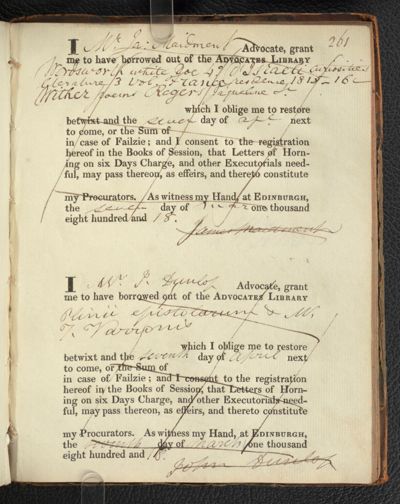 261
I Mr. Ja: Maidment Advocate, grant
me to have borrowed out of the ADVOCATES LIBRARY
Wordsworth white Doe 4o D'Israeli Curiosities
Literature 3 vol. France residence 1815-16
Wither poems Rogers Jaqueline
which I oblige me to restore
betwixt and the seven day of apr next
to come, or the Sum of
in case of Failzie; and I consent to the registration
hereof in the Books of Session, that Letters of Horn-
ing on six Days Charge, and other Executorials need-
ful, may pass thereon, as effeirs, and thereto constitute
my Procurators. As witness my Hand, at EDINBURGH,
the seven day of mar one thousand
eight hundred and 18.
James Maidment
I Mr. J. Dunlop Advocate, grant
me to have borrowed out of the ADVOCATES LIBRARY
Plinii Epistolarum & M.
T. Varronis
which I oblige me to restore
betwixt and the seventh day of april next
to come, or the Sum of
in case of Failzie; and I consent to the registration
hereof in the Books of Session, that Letters of Horn-
ing on six Days Charge, and other Executorials need-
ful, may pass thereon, as effeirs, and thereto constitute
my Procurators. As witness my Hand, at EDINBURGH,
the seventh day of march one thousand
eight hundred and 18.
John Dunlop